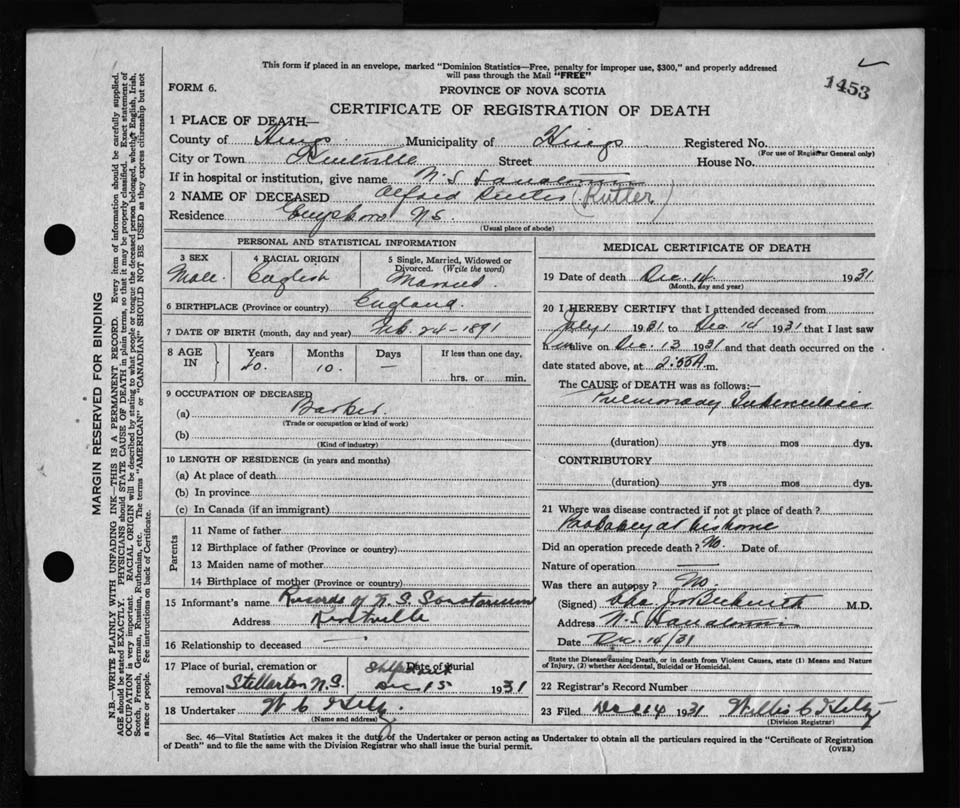 This form if placed in an envelope, marked "Dominion Statistics—Free, penalty for improper use, $300," and properly addressed
will pass through the Mail "FREE"
1453
FORM 6.
PROVINCE OF NOVA SCOTIA
CERTIFICATE OF REGISTRATION OF DEATH
1 PLACE OF DEATH—
County of Kings Municipality of Kings Registered No.
(For use of Registrar General only)
City or Town Kentville Street House No.
If in hospital or institution, give name N. S. Sanatorium
2 NAME OF DECEASED Alfred (Rutter)
Residence Guysboro N.S.
(Usual place of abode)
PERSONAL AND STATISTICAL INFORMATION
3 SEX Male.
4 RACIAL ORIGIN English
5 Single, Married, Widowed or Divorced. (Write the word) Married.
6 BIRTHPLACE (Province or country) England.
7 DATE OF BIRTH (month, day and year) Feb. 24 – 1891
8 AGE IN Years 40. Months 10. Days — If less than one day, hrs. or min.
9 OCCUPATION OF DECEASED
(a)
(Trade or occupation or kind of work)
(b)
(Kind of industry)
10 LENGTH OF RESIDENCE (in years and months)
(a) At place of death
(b) In province
(c) In Canada (if an immigrant)
Parents
11 Name of father
12 Birthplace of father (Province or country)
13 Maiden name of mother
14 Birthplace of mother (Province or country)
15 Informant's name Records of N. S. Sanatorium
Address Kentville
16 Relationship to deceased —
17 Place of burial, cremation or removal Stellarton N.S. Date of burial Dec 15 1931
18 Undertaker W C
(Name and address)
MEDICAL CERTIFICATE OF DEATH
19 Date of death Dec. 14. 1931
(Month, day and year)
20 I HEREBY CERTIFY that I attended deceased from
July 1 1931 to Dec. 14 1931 that I last saw
him alive on Dec. 13 1931 and that death occurred on the
date stated above, at 2:55 A. m.
The CAUSE of DEATH was as follows:—
Pulmonary Tuberculosis
(duration) yrs mos dys.
CONTRIBUTORY
(duration) yrs mos dys.
21 Where was disease contracted if not at place of death?
Probably at his home
Did an operation precede death? No. Date of
Nature of operation —
Was there an autopsy? No.
(Signed) Beckwith M.D.
Address N. S. Sanatorium
Date Dec. 14/31
State the Disease causing Death, or in death from Violent Causes, state (1) Means and Nature
of Injury, (2) whether Accidental, Suicidal or Homicidal.
22 Registrar's Record Number
23 Filed Dec 14 1931 Willis C
(Division Registrar)
Sec. 46—Vital Statistics Act makes it the duty of the Undertaker or person acting as Undertaker to obtain all the particulars required in the "Certificate of Registration
of Death" and to file the same with the Division Registrar who shall issue the burial permit.
(OVER)
MARGIN RESERVED FOR BINDING
N.B.—WRITE PLAINLY WITH UNFADING INK—THIS IS A PERMANENT RECORD. Every item of information should be carefully supplied.
AGE should be stated EXACTLY. PHYSICIANS should STATE CAUSE OF DEATH in plain terms, so that it may be properly classified. Exact statement of
OCCUPATION is very important. RACIAL ORIGIN will be described by stating to what people or tongue the deceased person belonged, whether English, Irish,
Scotch, French, German, Russian, Ruthenian, etc. The terms "AMERICAN" or "CANADIAN" SHOULD NOT BE USED as they express citizenship but not
a race or people. See instructions on back of Certificate.